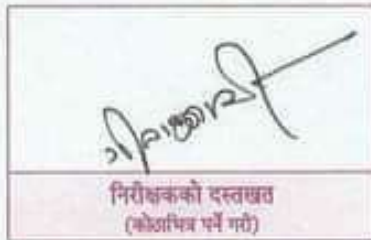 निरीक्षकको दस्तखत
(कोठाभित्र पर्ने गरी)